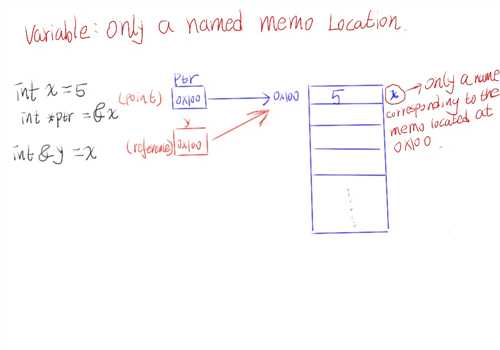 Variable: Only a named memo Location.
int x = 5
int *Ptr = &x
int & y = x
(point)
Ptr
0x100
y
(reference)
0x100
0x100
5
x
Only a name
corresponding to the
memo located at
0x100.